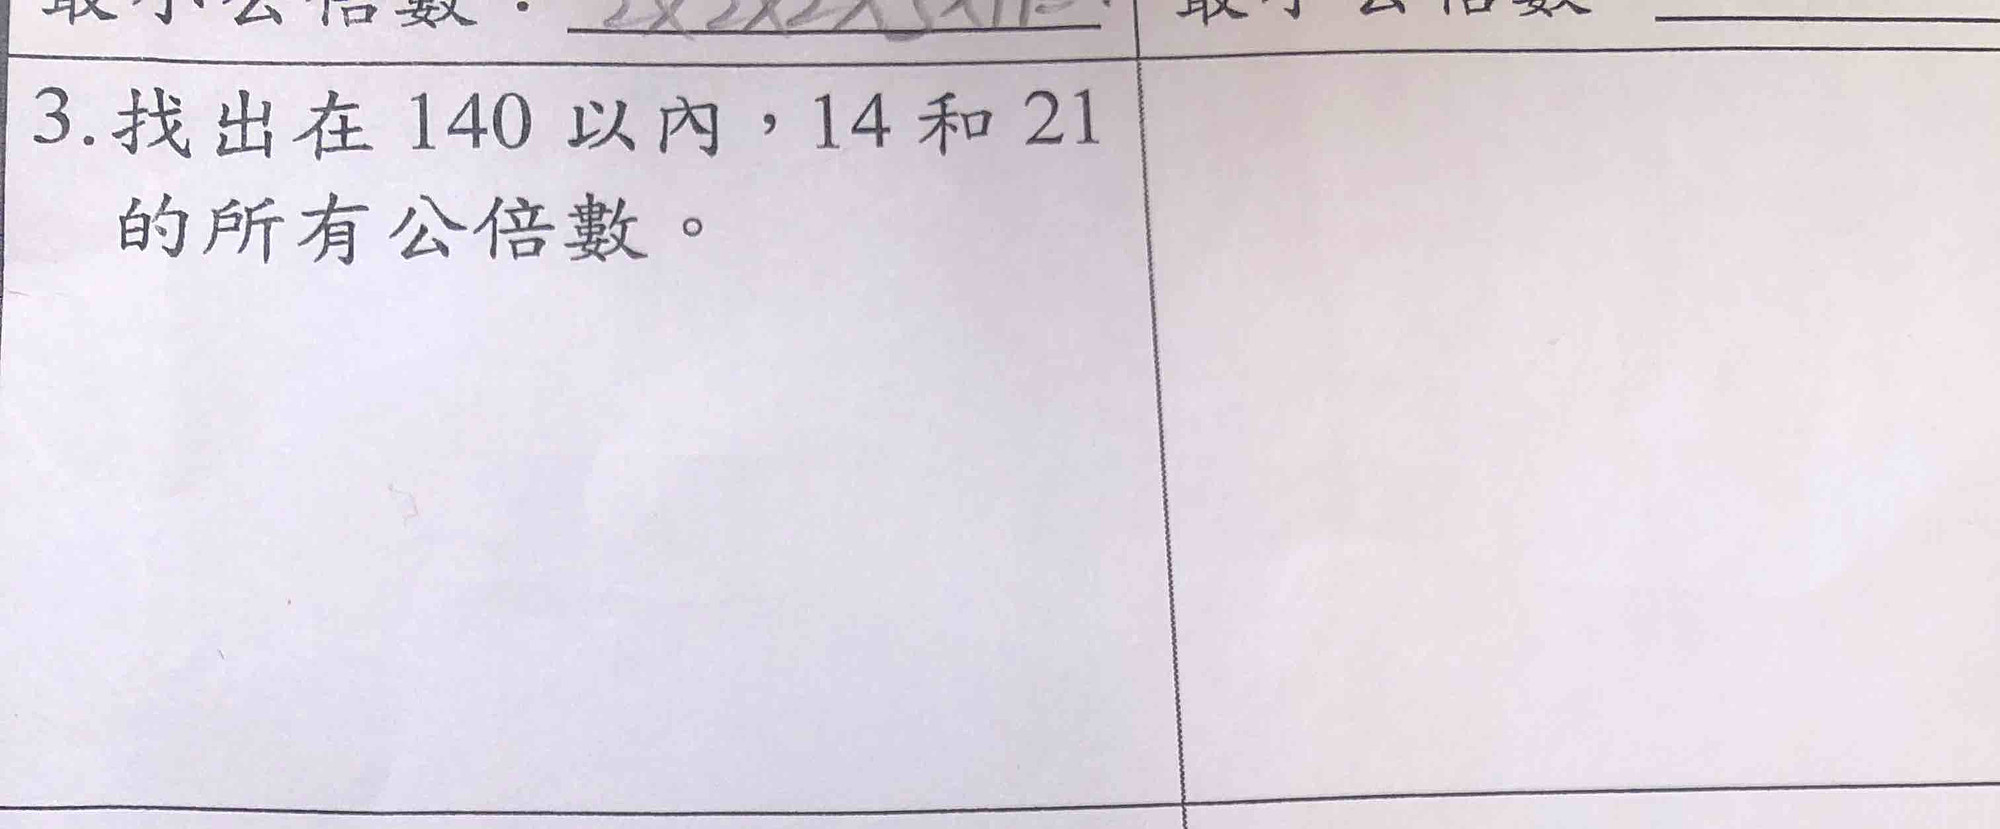 最小公倍數：2×2×2×3×11=
最小公倍數
3.找出在 140 以內，14 和 21
的所有公倍數。